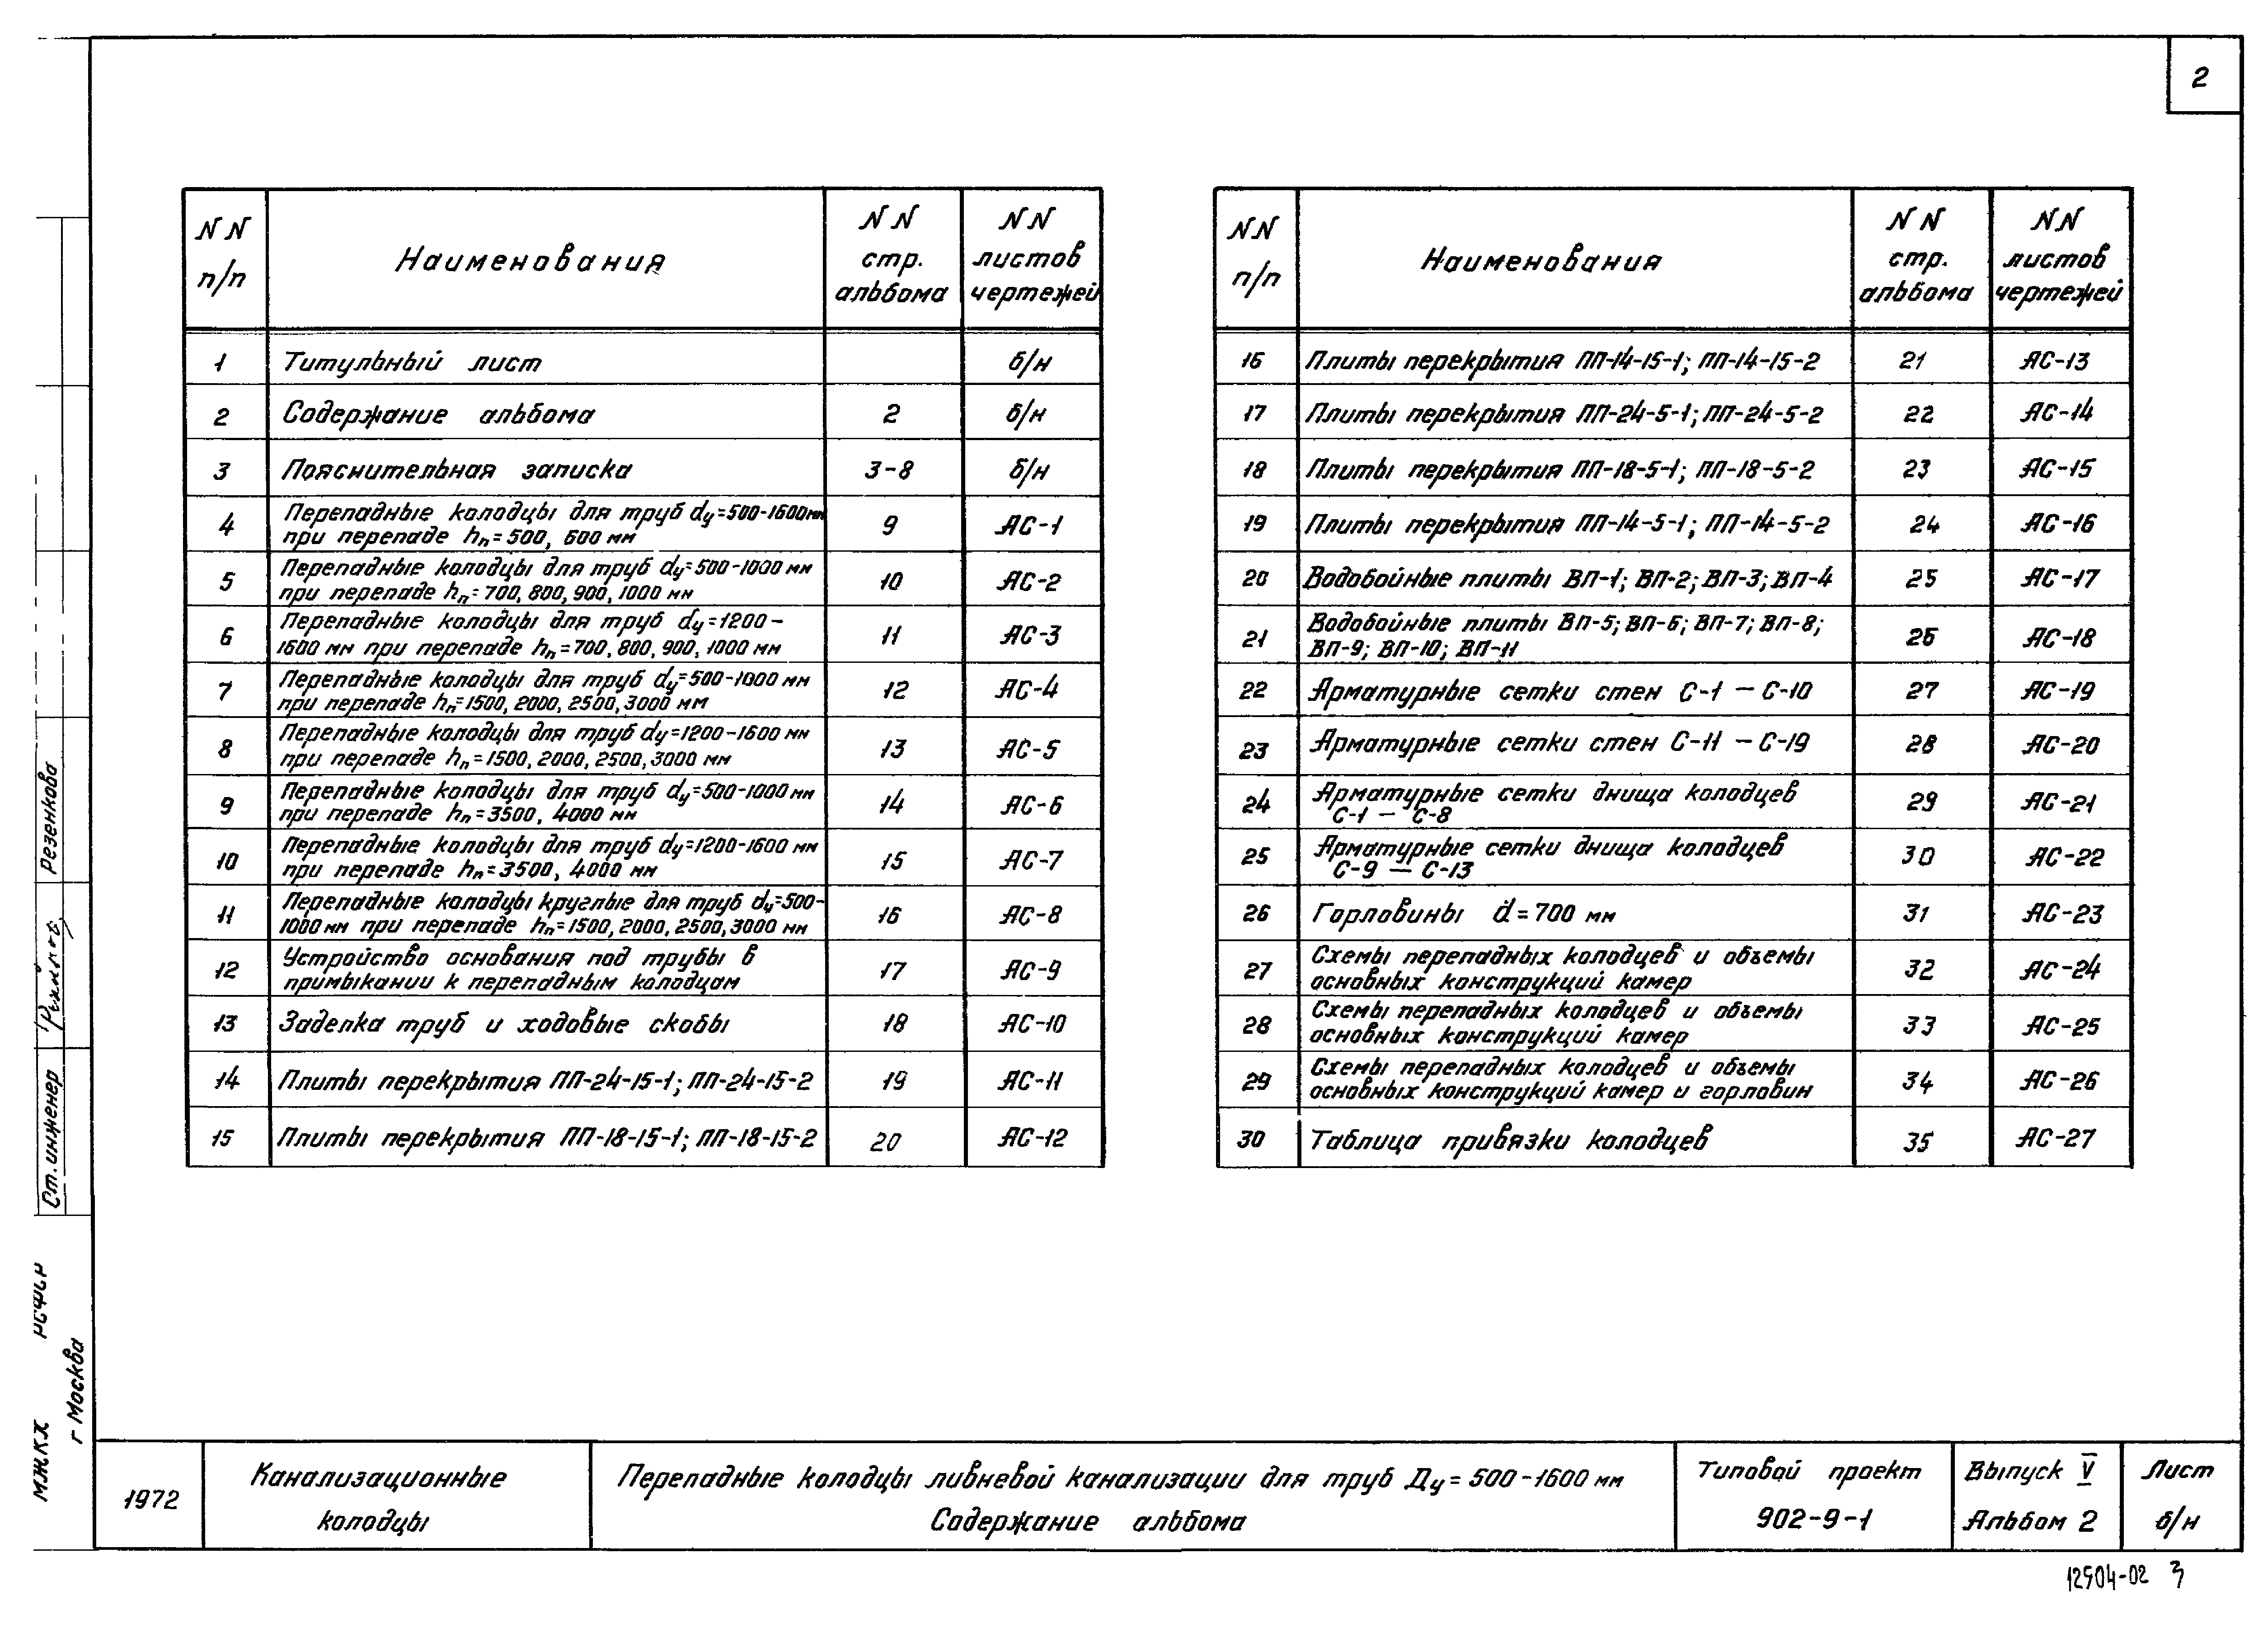 2
NN п/п Наименования NN стр. альбома NN листов чертежей
1 Титульный лист б/н
2 Содержание альбома 2 б/н
3 Пояснительная записка 3-8 б/н
4 Перепадные колодцы для труб dу=500-1600мм
при перепаде hп=500, 600 мм 9 АС-1
5 Перепадные колодцы для труб dу=500-1000 мм
при перепаде hп=700, 800, 900, 1000 мм 10 АС-2
6 Перепадные колодцы для труб dу=1200-
1600 мм при перепаде hп=700, 800, 900, 1000 мм 11 АС-3
7 Перепадные колодцы для труб dу=500-1000 мм
при перепаде hп=1500, 2000, 2500, 3000 мм 12 АС-4
8 Перепадные колодцы для труб dу=1200-1600 мм
при перепаде hп=1500, 2000, 2500, 3000 мм 13 АС-5
9 Перепадные колодцы для труб dу=500-1000 мм
при перепаде hп=3500, 4000 мм 14 АС-6
10 Перепадные колодцы для труб dу=1200-1600 мм
при перепаде hп=3500, 4000 мм 15 АС-7
11 Перепадные колодцы круглые для труб dу=500-
1000 мм при перепаде hп=1500, 2000, 2500, 3000 мм 16 АС-8
12 Устройство основания под трубы в
примыкании к перепадным колодцам 17 АС-9
13 Заделка труб и ходовые скобы 18 АС-10
14 Плиты перекрытия ПП-24-15-1; ПП-24-15-2 19 АС-11
15 Плиты перекрытия ПП-18-15-1; ПП-18-15-2 20 АС-12
NN п/п Наименования NN стр. альбома NN листов чертежей
16 Плиты перекрытия ПП-14-15-1; ПП-14-15-2 21 АС-13
17 Плиты перекрытия ПП-24-5-1; ПП-24-5-2 22 АС-14
18 Плиты перекрытия ПП-18-5-1; ПП-18-5-2 23 АС-15
19 Плиты перекрытия ПП-14-5-1; ПП-14-5-2 24 АС-16
20 Водобойные плиты ВП-1; ВП-2; ВП-3; ВП-4 25 АС-17
21 Водобойные плиты ВП-5; ВП-6; ВП-7; ВП-8;
ВП-9; ВП-10; ВП-11 26 АС-18
22 Арматурные сетки стен С-1 — С-10 27 АС-19
23 Арматурные сетки стен С-11 — С-19 28 АС-20
24 Арматурные сетки днища колодцев
С-1 — С-8 29 АС-21
25 Арматурные сетки днища колодцев
С-9 — С-13 30 АС-22
26 Горловины d=700 мм 31 АС-23
27 Схемы перепадных колодцев и объемы
основных конструкций камер 32 АС-24
28 Схемы перепадных колодцев и объемы
основных конструкций камер 33 АС-25
29 Схемы перепадных колодцев и объемы
основных конструкций камер и горловин 34 АС-26
30 Таблица привязки колодцев 35 АС-27
Ст. инженер Резенкова
МЖКХ РСФСР
г Москва
1972
Канализационные
колодцы
Перепадные колодцы ливневой канализации для труб Ду=500-1600 мм
Содержание альбома
Типовой проект
902-9-1
Выпуск V
Альбом 2
Лист
б/н
12504-02 3